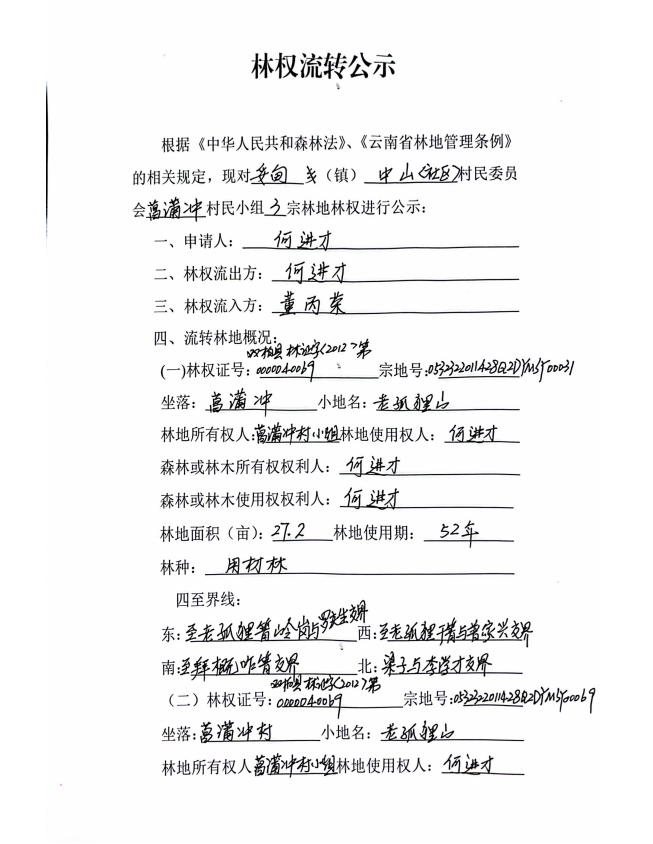 林权流转公示
根据《中华人民共和森林法》、《云南省林地管理条例》
的相关规定，现对妥甸 乡（镇） 中山(社区)村民委员
会菖蒲冲村民小组3宗林地林权进行公示：
一、申请人： 何进才
二、林权流出方： 何进才
三、林权流入方： 董丙荣
四、流转林地概况：
双柏县林证字(2012)第
(一)林权证号：0000040069 宗地号：
坐落： 菖蒲冲 小地名：老狐狸山
林地所有权人：菖蒲冲村小组林地使用权人： 何进才
森林或林木所有权权利人： 何进才
森林或林木使用权权利人： 何进才
林地面积（亩）：27.2 林地使用期： 52年
林种： 用材林
四至界线：
东：至老狐狸箐岭岗与 交界 西：至老狐狸 箐与曾家兴交界
南：至拜 咋箐交界 北：梁子与李学才交界
双柏县林证字(2012)第
（二）林权证号：0000040069 宗地号：
坐落：菖蒲冲村 小地名： 老狐狸山
林地所有权人菖蒲冲村小组林地使用权人： 何进才